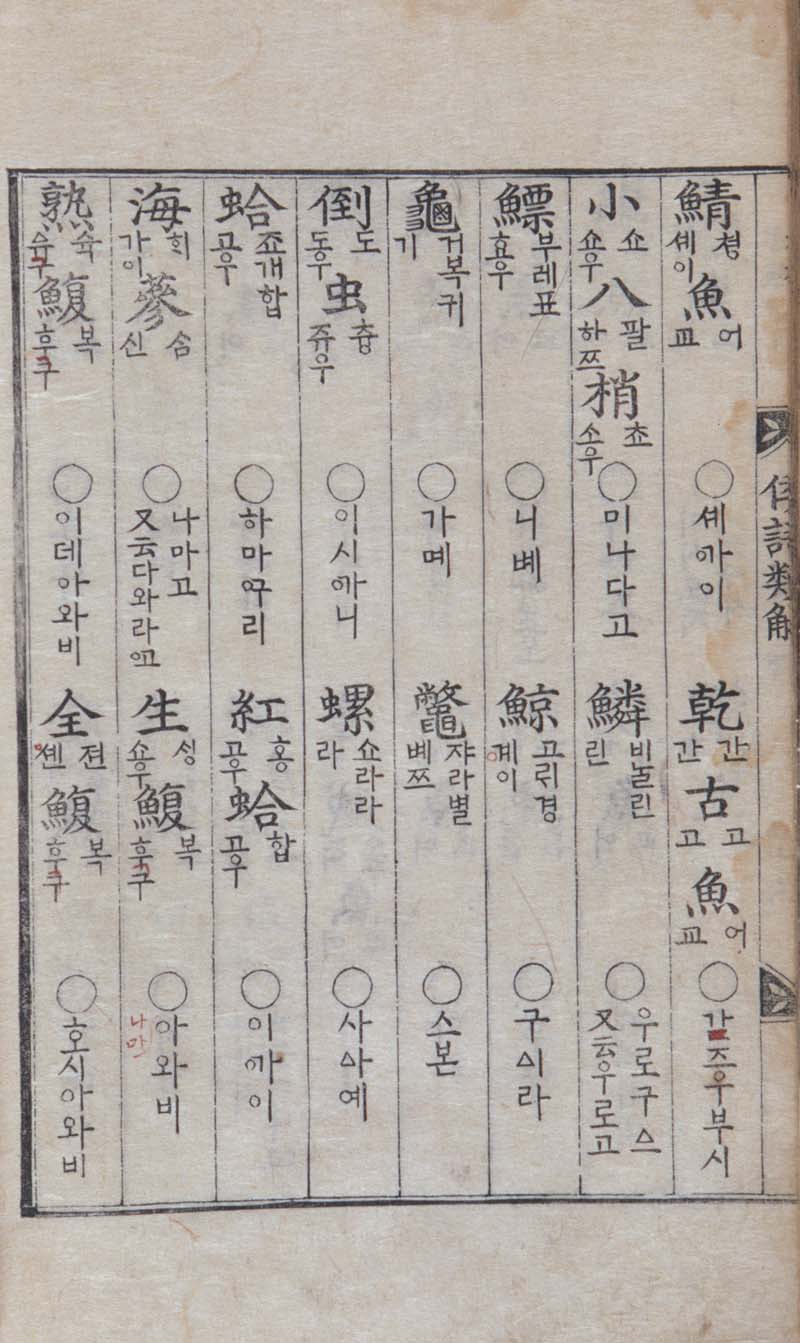 鯖 쳥 셰이 魚 어 교 ○ 셰ᅁᅡ이 乾 간 간 古 고 고 魚 어 교 ○ 갇즈우부시
小 쇼 쇼우 八 팔 하쯔 梢 쵸 소우 ○ 미나다고 鱗 비늘린 린 ○ 우로구ᅀᅳ 又云우로고
鰾 부레표 효우 ○ 니볘 鯨 고ᄅᆡ경 계이 ○ 구ᅀᅵ라
龜 거복귀 기 ○ 가몌 鼈 쟈라별 볘쯔 ○ 스본
倒 도 도우 虫 츙 쥬우 ○ 이시ᅁᅡ니 螺 쇼라라 라 ○ 사ᅀᅡ예
蛤 죠개합 고우 ○ 하마ᅁᅮ리 紅 홍 고우 蛤 합 고우 ○ 이ᅁᅡ이
海 ᄒᆡ 가이 蔘 ᄉᆞᆷ 신 ○ 나마고 又云다와라ᅁᅩ 生 ᄉᆡᆼ 쇼우 鰒 복 후구 ○ 아와비 나마
熟 슉 슈구 鰒 복 후구 ○ 이데아와비 全 젼 쪤 鰒 복 후구 ○ 호시아와비